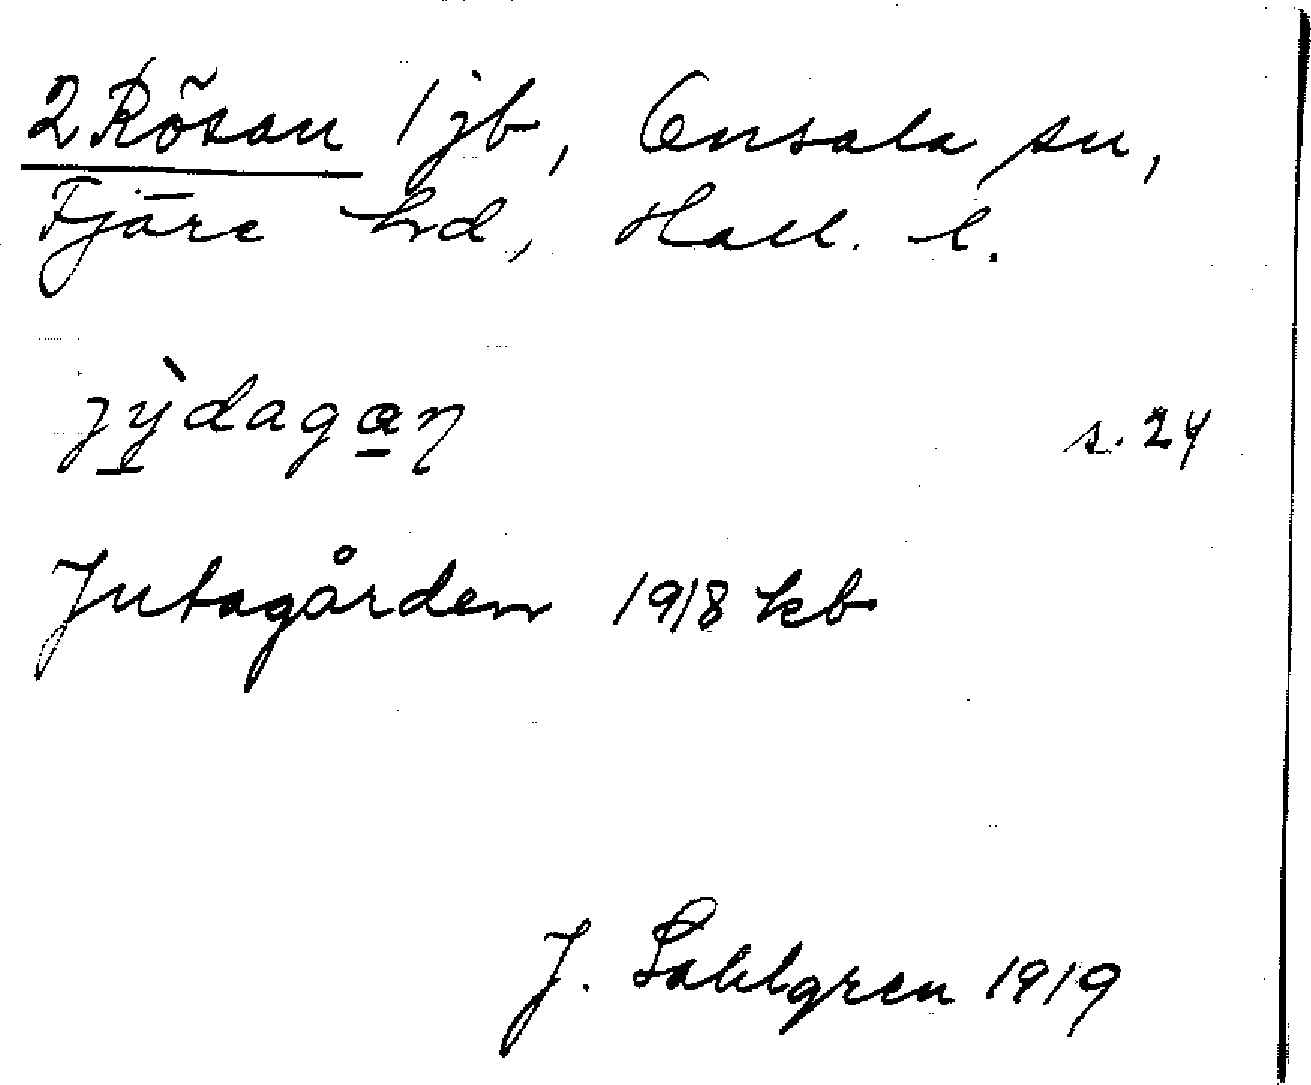 2 Rösan 1 jb, Onsala sn,
Fjäre hd, Hall. l.
jỳ̱daga̱ŋ s. 24
Jutagården 1918 kb
J. Sahlgren 1919